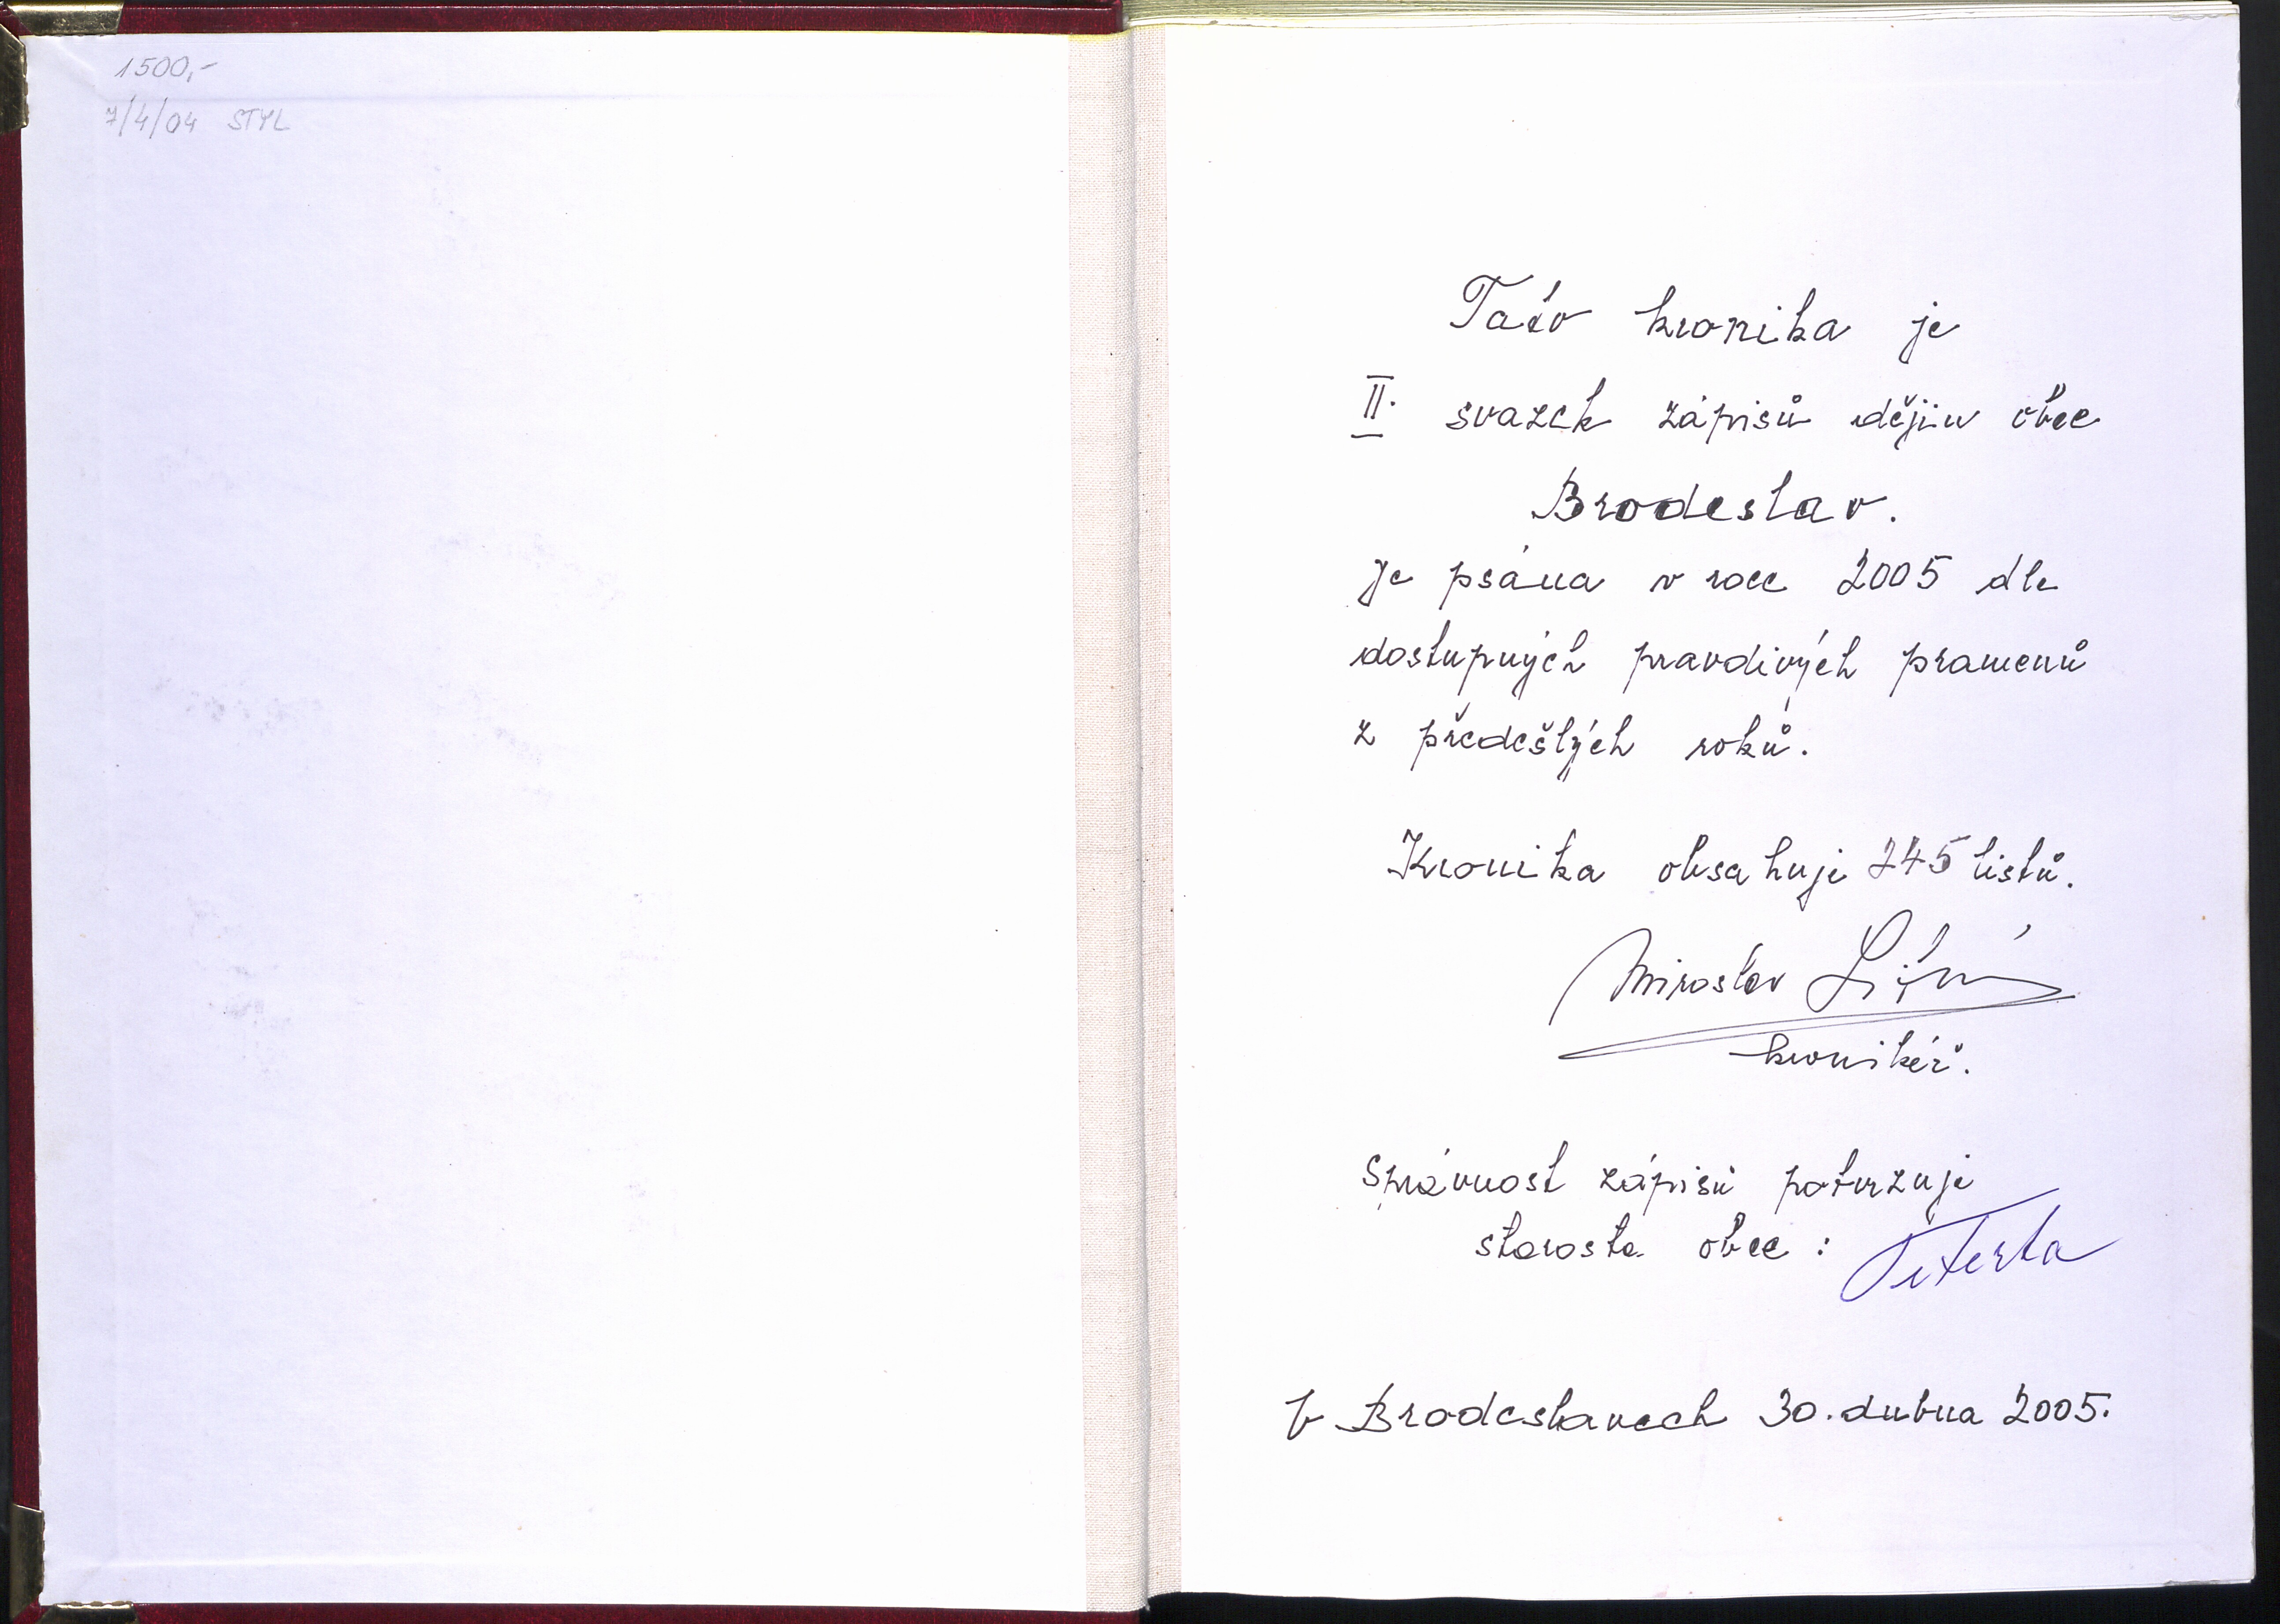 1500,-
7/4/04 STYL
Tato kronika je
II. svazek zápisů dějin obce
Brodeslav.
Je psána v roce 2005 dle
dostupných pravdivých pramenů
z předešlých roků.
Kronika obsahuje 245 listů.
Miroslav
kronikář.
Správnost zápisů potvrzuje
starosta obce :
V Brodeslavech 30. dubna 2005.